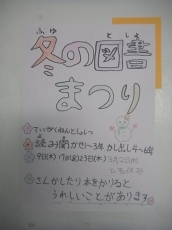 ふゆ としょ
冬の図書
まつり
ていがくねんとしょしつ
読み聞かせ1〜3年 かし出し4〜6年
9日(木)17日(金)23日(木)
ひる休み
さんかしたり本をかりると
うれしいことがあります